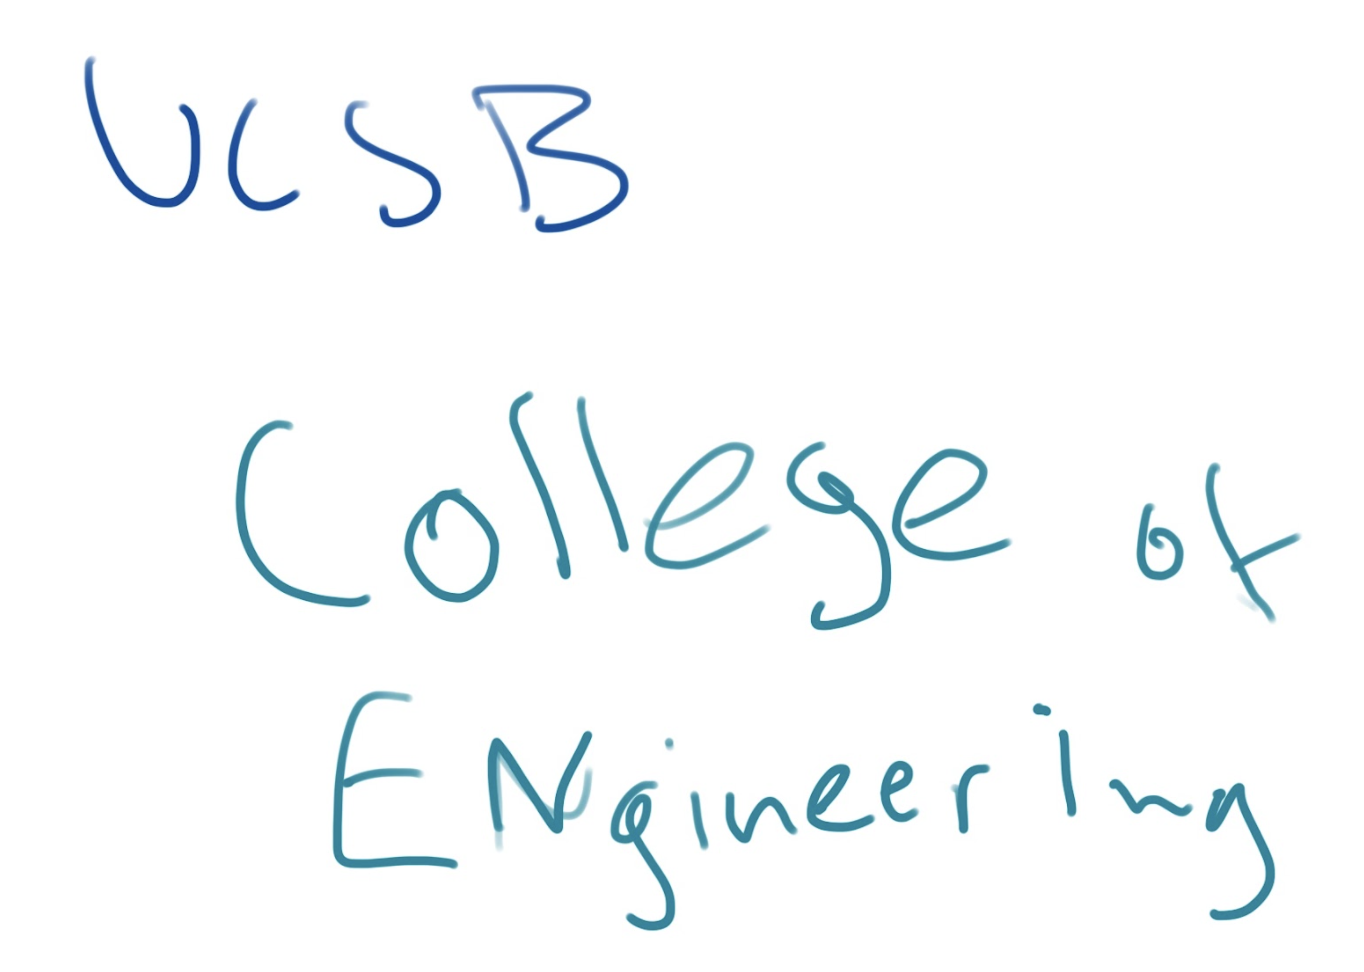 UCSB
College of
ENgineering